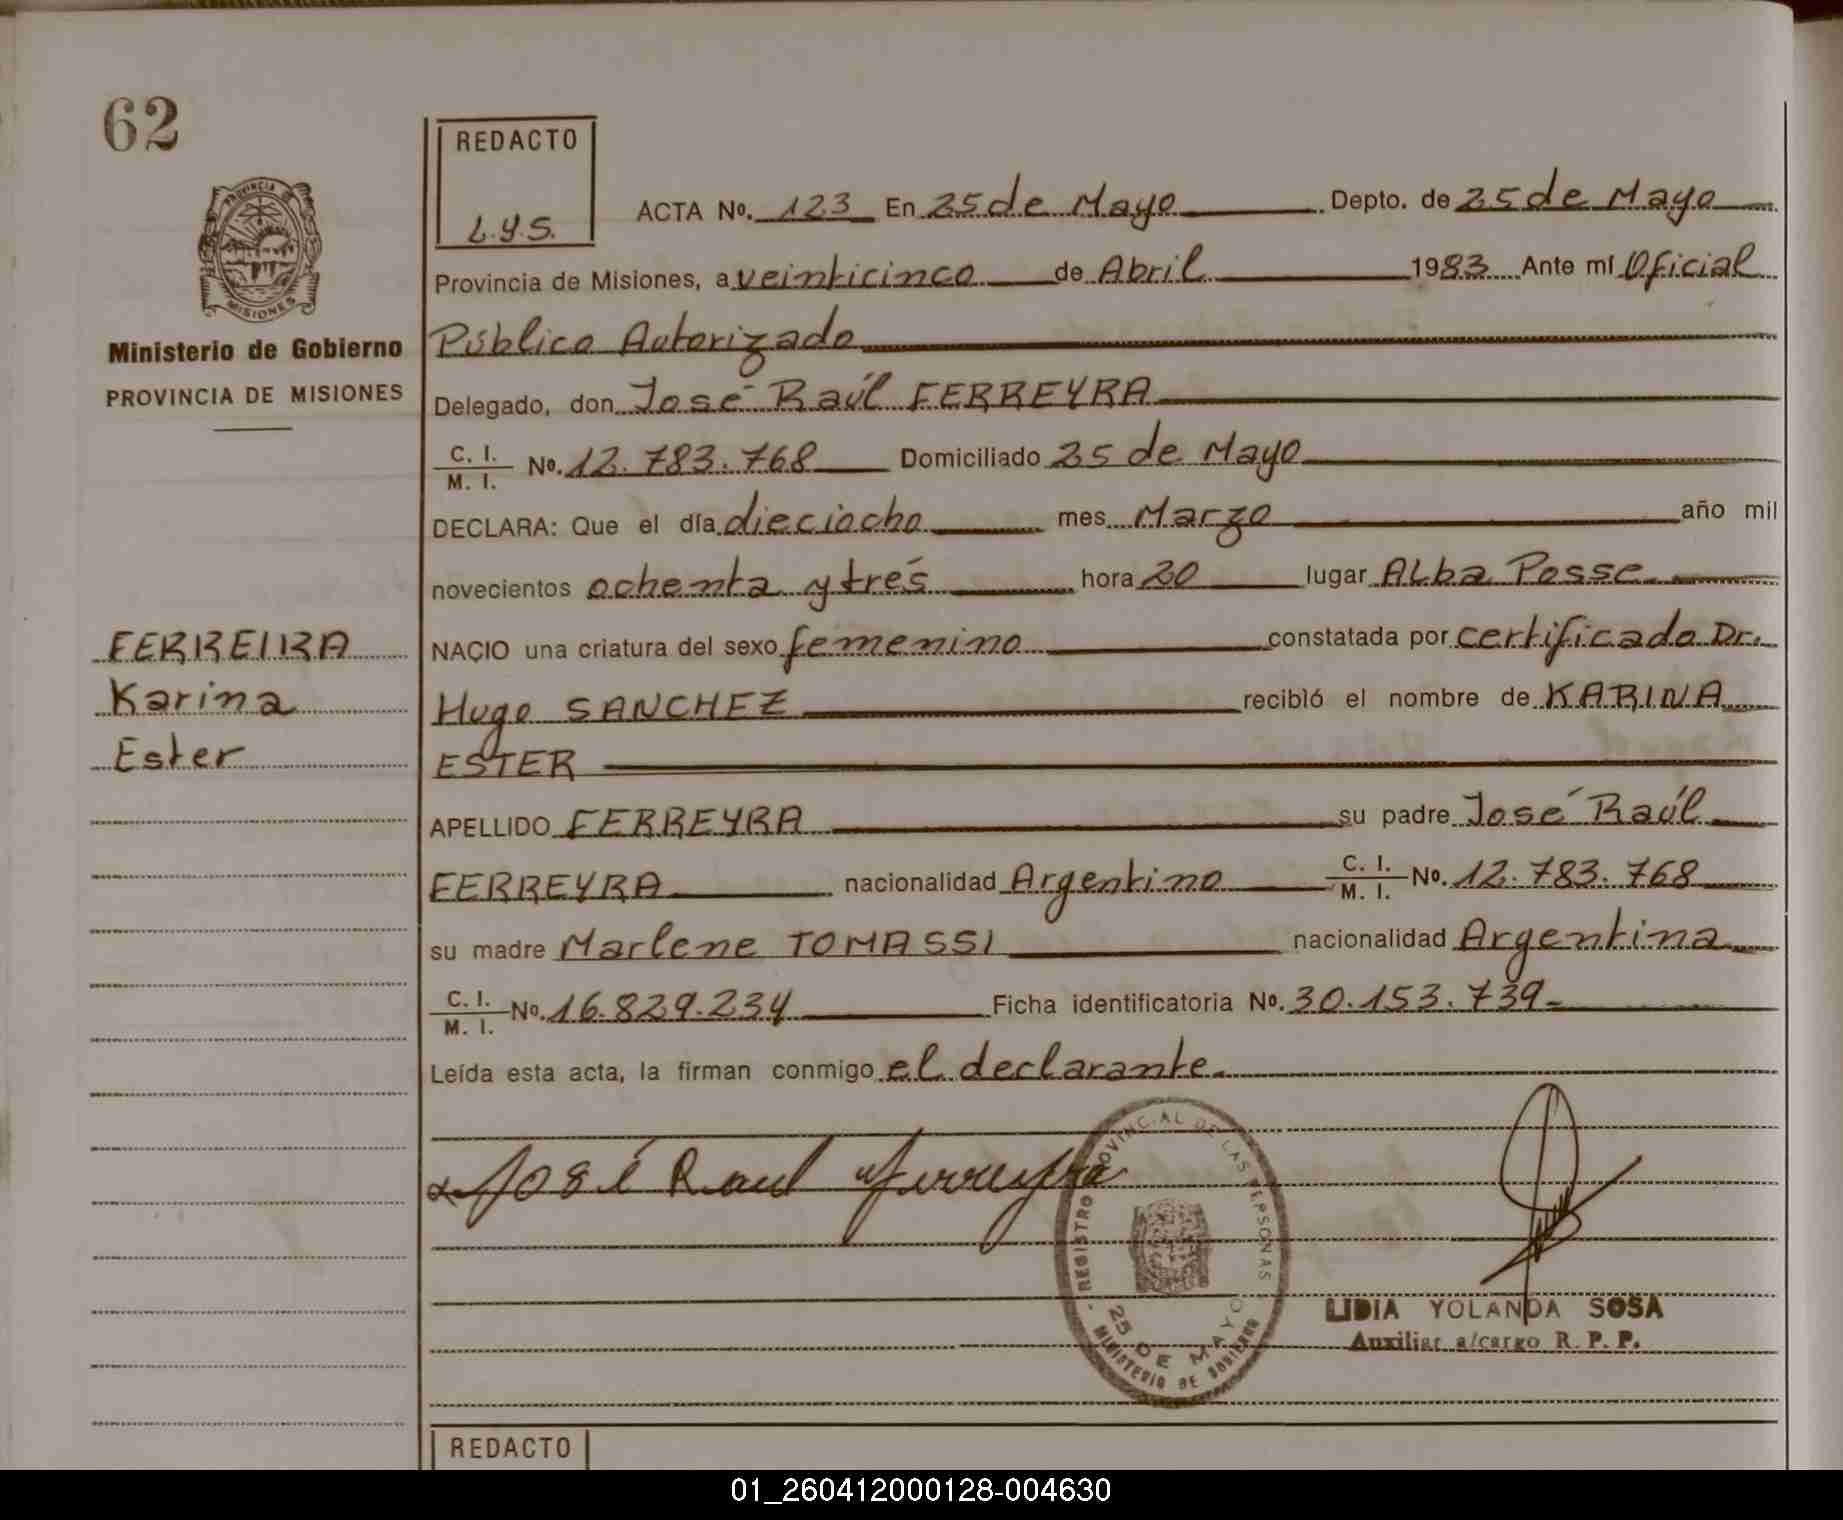 62
REDACTO
L.Y.S.
PROVINCIA DE
MISIONES
Ministerio de Gobierno
PROVINCIA DE MISIONES
ACTA No. 123 En 25 de Mayo Depto. de 25 de Mayo
Provincia de Misiones, a veinticinco de Abril 1983 Ante mí Oficial
Público Autorizado
Delegado, don José Raúl FERREYRA
C. I. / M. I. No. 12.783.768 Domiciliado 25 de Mayo
DECLARA: Que el día dieciocho mes Marzo año mil
novecientos ochenta y trés hora 20 lugar Alba Posse
FERREIRA
Karina
Ester
NACIO una criatura del sexo femenino constatada por certificado Dr.
Hugo SANCHEZ recibió el nombre de KARINA
ESTER
APELLIDO FERREYRA su padre José Raúl
FERREYRA nacionalidad Argentino C. I. / M. I. No. 12.783.768
su madre Marlene TOMASSI nacionalidad Argentina
C. I. / M. I. No. 16.829.234 Ficha identificatoria No. 30.153.739-
Leída esta acta, la firman conmigo el declarante.
José Raul Ferreyra
REGISTRO PROVINCIAL DE LAS PERSONAS
25 DE MAYO
MINISTERIO DE GOBIERNO
LIDIA YOLANDA SOSA
Auxiliar a/cargo R. P. P.
REDACTO
01_260412000128-004630